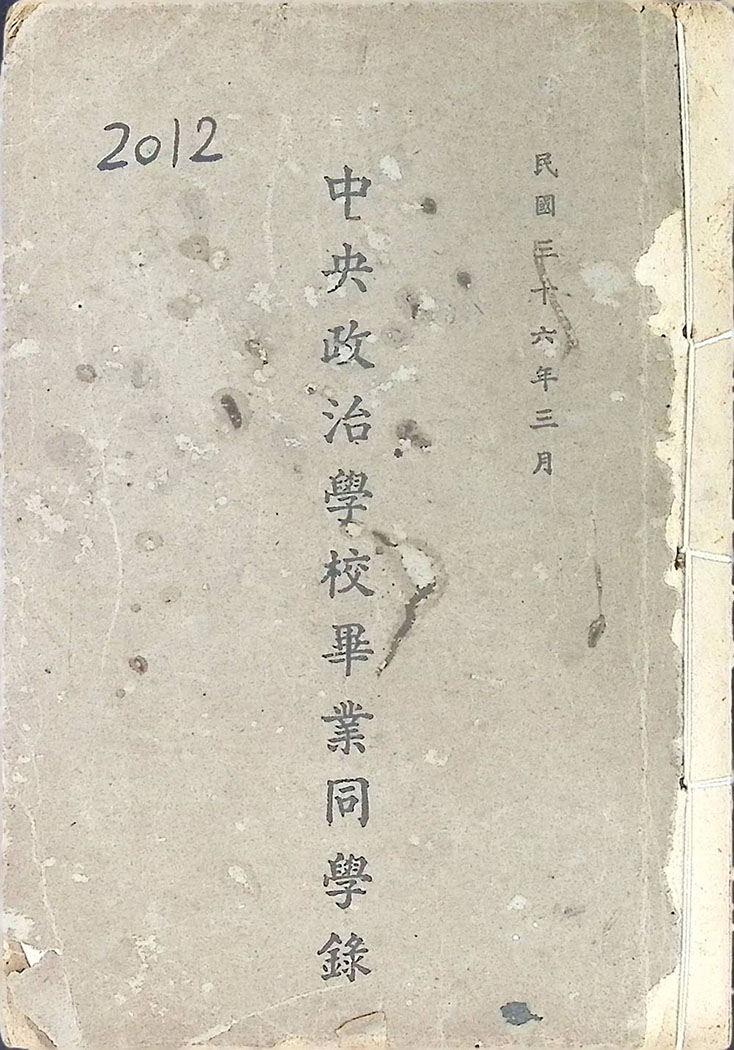 民國三十六年三月
中央政治學校畢業同學錄
2012